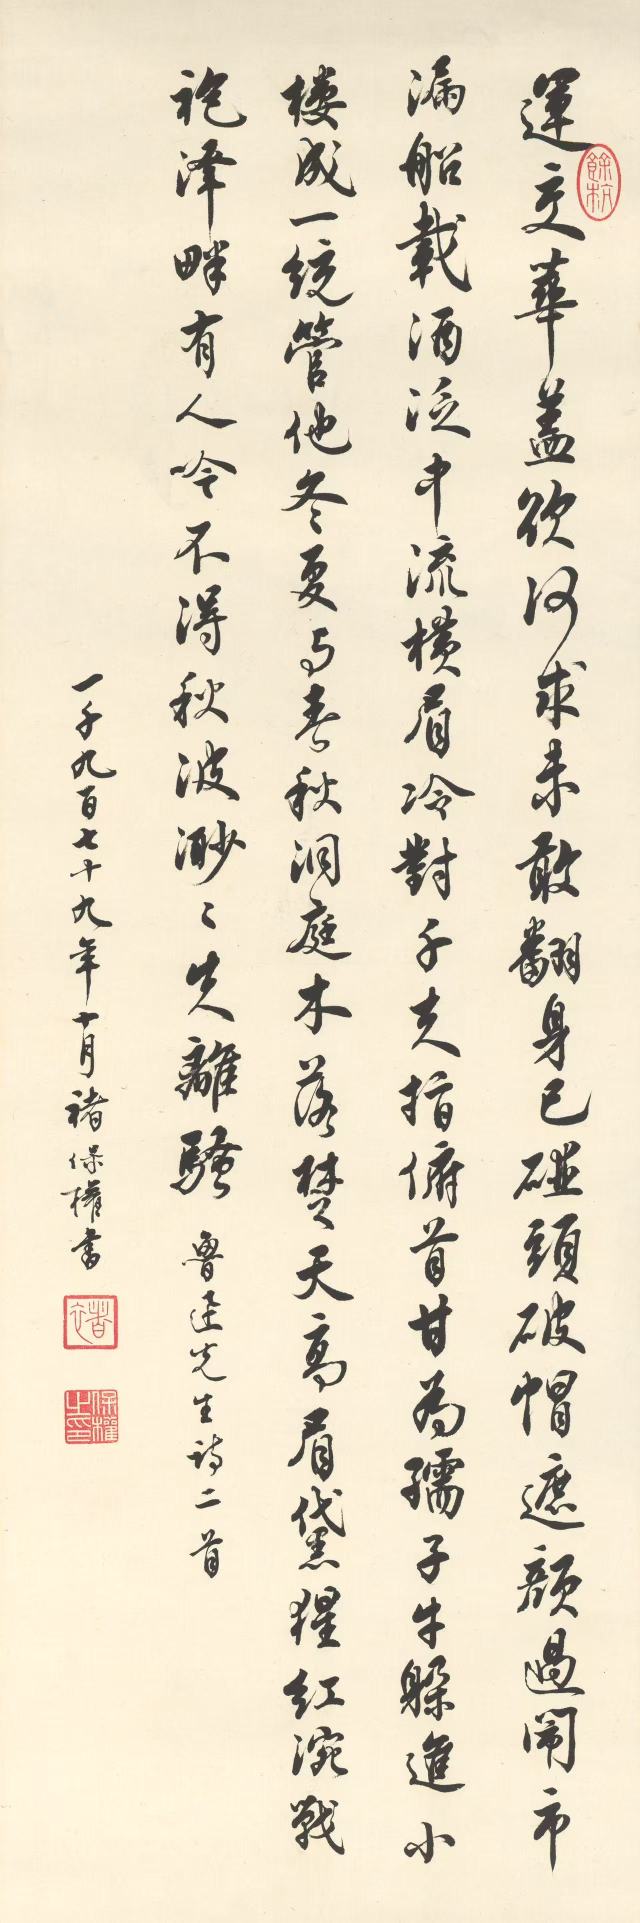 餘杭
運交華蓋欲何求未敢翻身已碰頭破帽遮顏過閙市
漏船載酒泛中流横眉冷對千夫指俯首甘為孺子牛躲進小
樓成一統管他冬夏与春秋洞庭木落楚天高眉黛猩紅涴戰
袍澤畔有人吟不得秋波渺々失離騷 魯迅先生詩二首
一千九百七十九年十月褚保權書
褚
保權之印